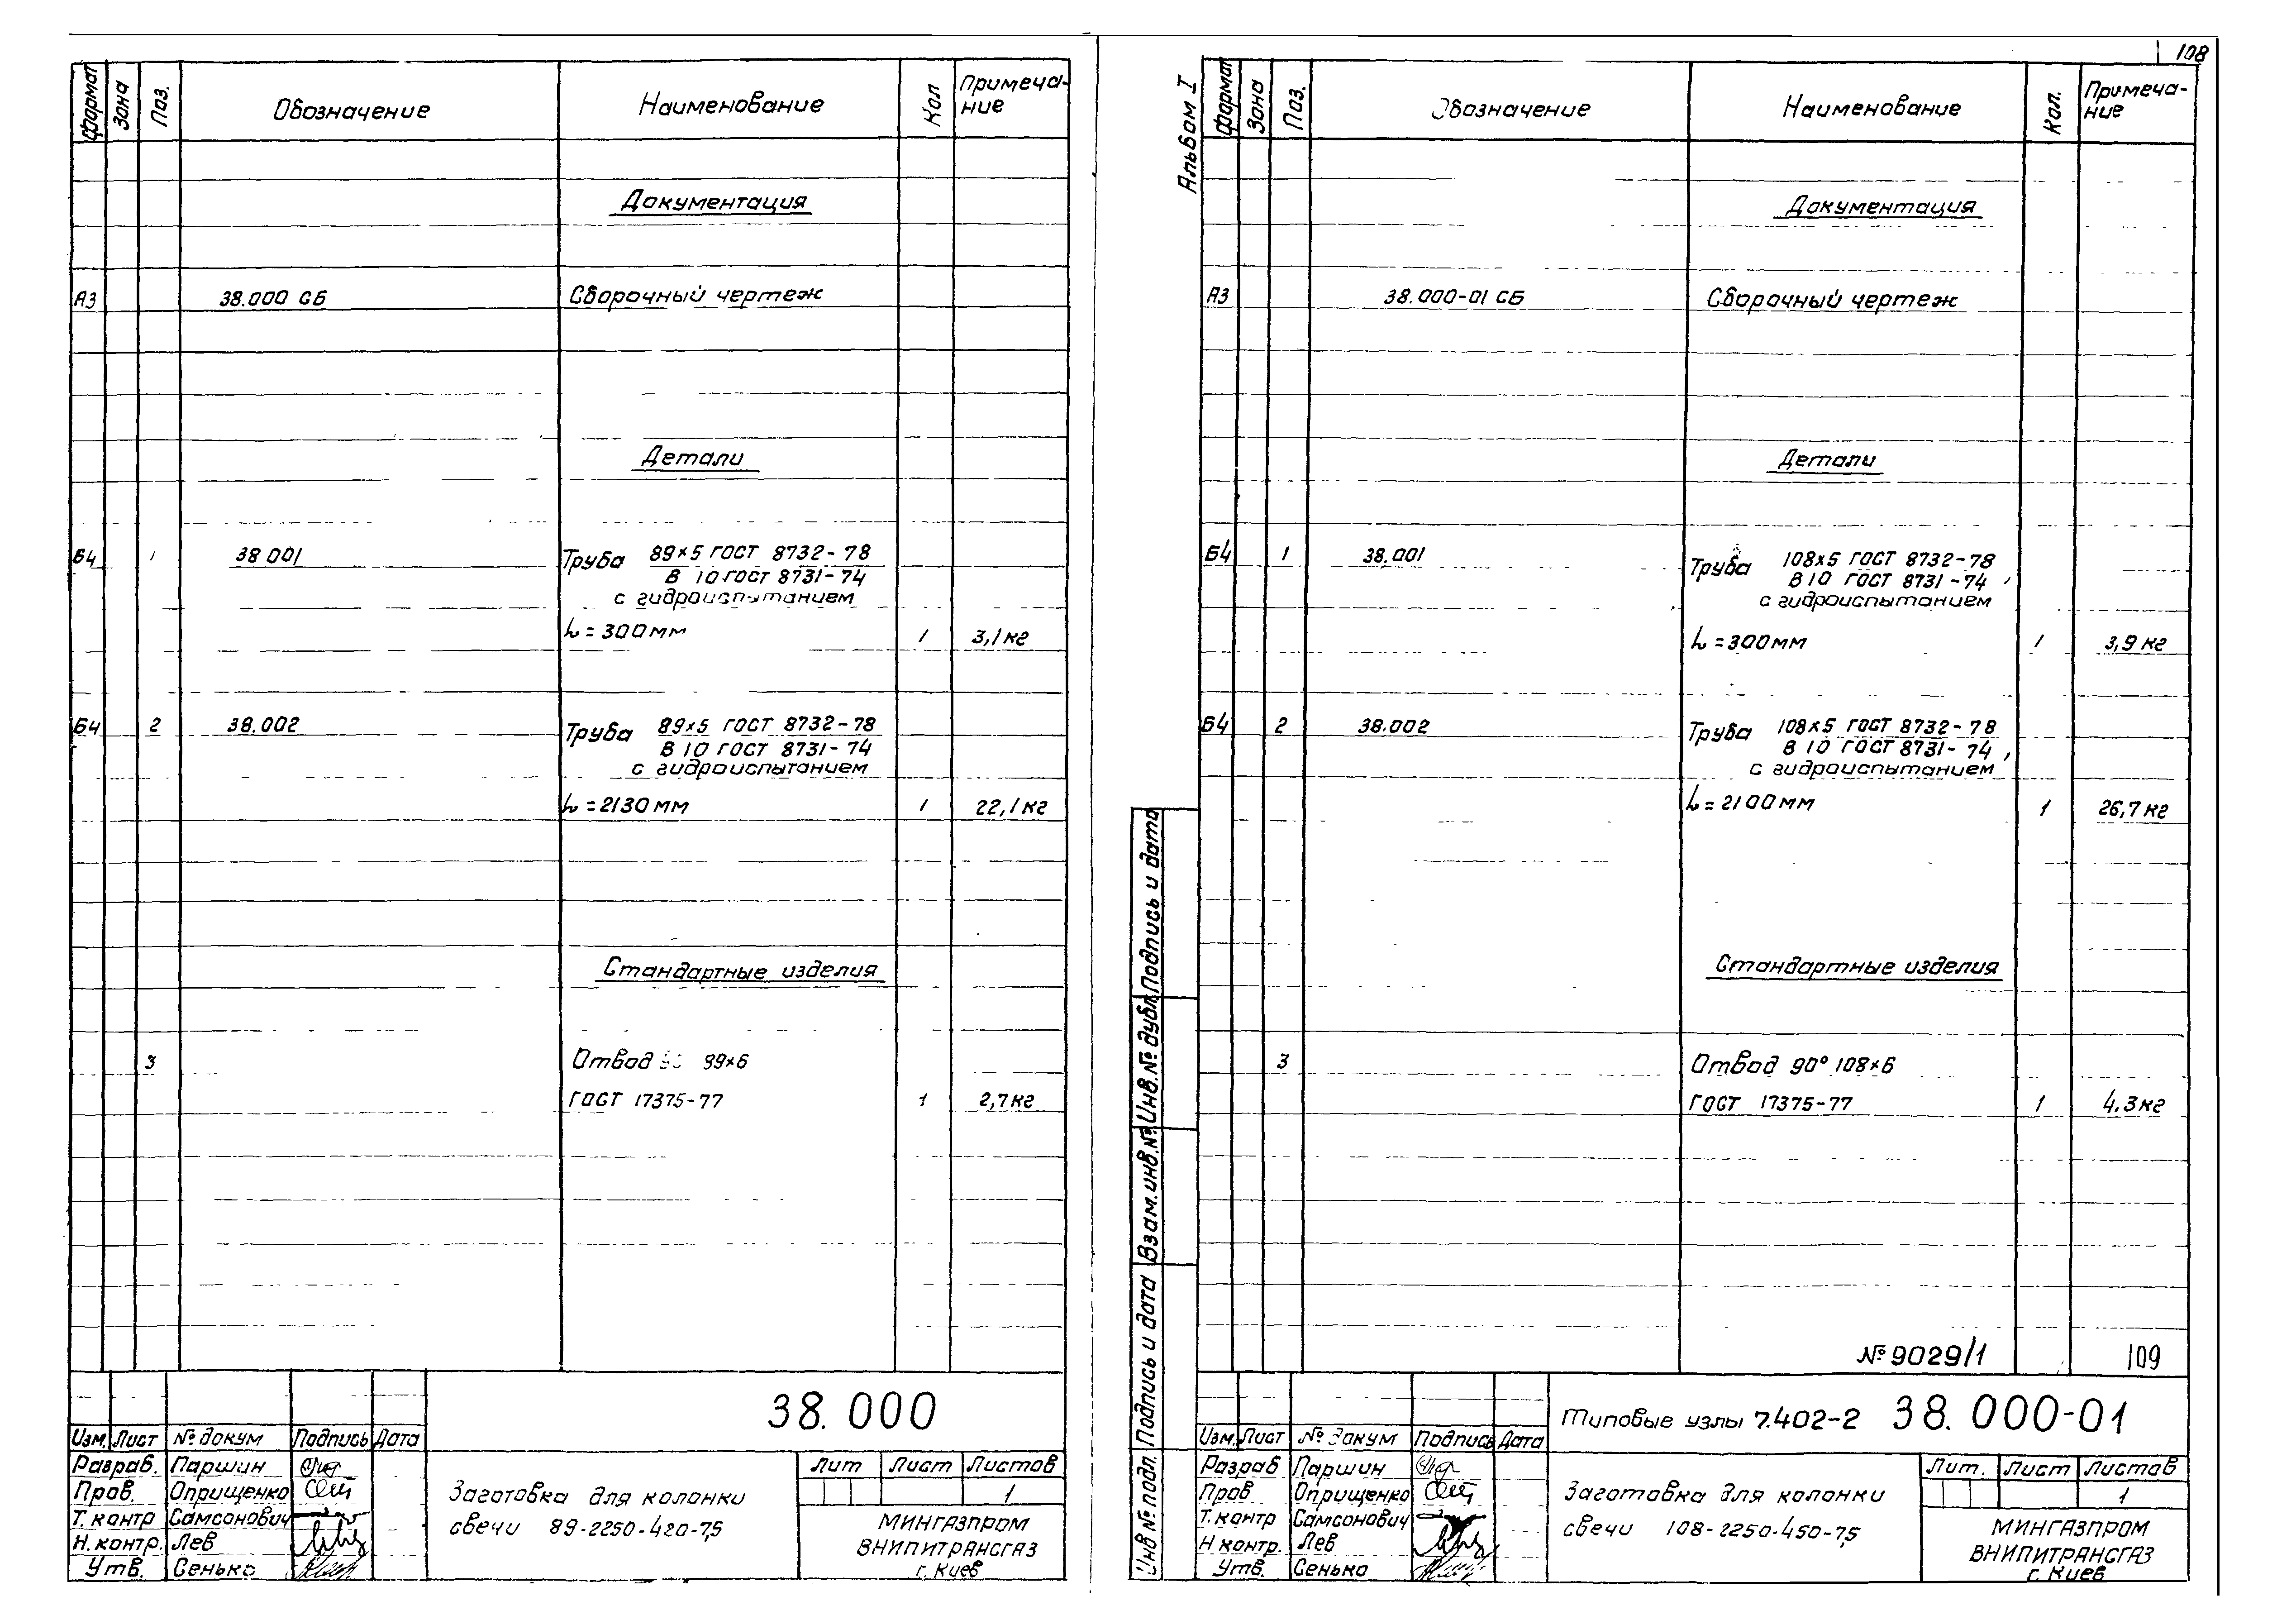 формат Зона Поз. Обозначение Наименование Кол Примеча-
ние
Документация
А3 38.000 СБ Сборочный чертеж
Детали
Б4 1 38 001 Труба 89×5 ГОСТ 8732-78
В 10 ГОСТ 8731-74
с гидроиспытанием
L = 300 мм 1 3,1 кг
Б4 2 38.002 Труба 89×5 ГОСТ 8732-78
В 10 ГОСТ 8731-74
с гидроиспытанием
L = 2130 мм 1 22,1 кг
Стандартные изделия
3 Отвод 89×6
ГОСТ 17375-77 1 2,7 кг
38. 000
Изм. Лист № докум Подпись Дата
Разраб. Паршин
Пров. Оприщенко
Т. контр Самсонович
Н. контр. Лев
Утв. Сенько
Заготовка для колонки
свечи 89-2250-420-7,5
Лит Лист Листов
1
МИНГАЗПРОМ
ВНИПИТРАНСГАЗ
г. Киев
108
Альбом I
формат Зона Поз. Обозначение Наименование Кол. Примеча-
ние
Документация
А3 38.000-01 СБ Сборочный чертеж
Детали
Б4 1 38.001 Труба 108×5 ГОСТ 8732-78
В 10 ГОСТ 8731-74,
с гидроиспытанием
L = 300 мм 1 3,9 кг
Б4 2 38.002 Труба 108×5 ГОСТ 8732-78
В 10 ГОСТ 8731-74,
с гидроиспытанием
L = 2100 мм 1 26,7 кг
Стандартные изделия
3 Отвод 90° 108×6
ГОСТ 17375-77 1 4.3 кг
№ 9029/1 109
Инв № подл. Подпись и дата Взам. инв. № Инв. № дубл. Подпись и дата
Типовые узлы 7.402-2 38. 000-01
Изм. Лист № докум Подпись Дата
Разраб Паршин
Пров Оприщенко
Т. контр Самсонович
Н контр. Лев
Утв. Сенько
Заготовка для колонки
свечи 108-2250-450-7,5
Лит. Лист Листов
1
МИНГАЗПРОМ
ВНИПИТРАНСГАЗ
г. Киев